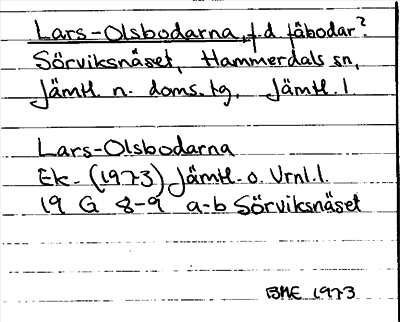 Lars-Olsbodarna, f.d. fäbodar?
Sörviksnäset, Hammerdals sn,
Jämtl. n. doms. tg, Jämtl. l.
Lars-Olsbodarna
Ek. (1973) Jämtl. o. Vrnl. l.
19 G 8-9 a-b Sörviksnäset
BME 1973